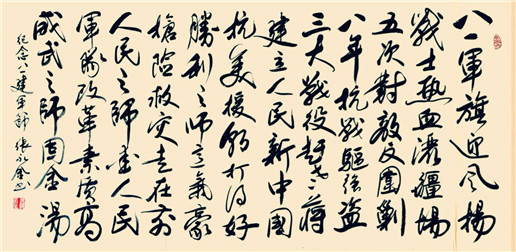 八一軍旗迎风揚
戰士热血灑疆場
五次對敵反圍剿
八年抗戰驅強盜
三大戰役趕老蔣
建立人民新中國
抗美援朝打得好
勝利之师意氣豪
搶險救灾走在前
人民之师爱人民
軍隊改革素质高
威武之师固金湯
纪念八一建軍節 張永金书